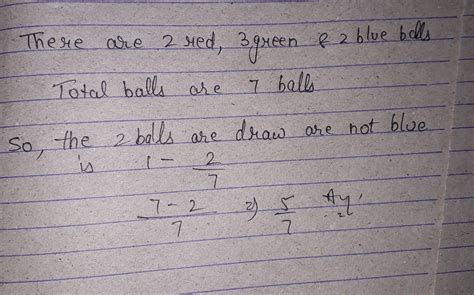 There are 2 red, 3 green & 2 blue balls
Total balls are 7 balls
So, the 2 balls are draw are not blue
is 1 - 2/7
7-2/7 => 5/7